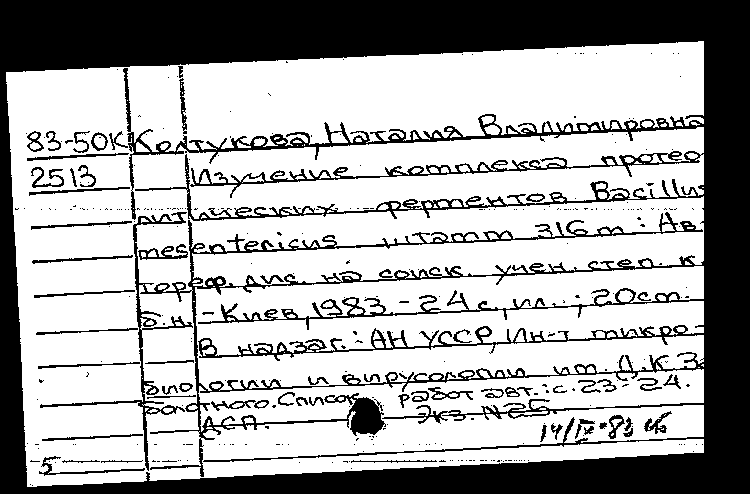 83-50К Колтукова, Наталия Владимировна
2513 Изучение комплекса протео
литических ферментов Bacillus
mesentericus штамм 316m : Ав
тореф. дис. на соиск. учен. степ. к.
б.н. - Киев, 1983. - 24 с., ил. ; 20см.
В надзаг.: АН УССР, Ин-т микро-
биологии и вирусологии им. Д.К. За
болотного. Список работ авт.: с. 23-24.
ДСП. Экз. N26.
14/IV-83
5